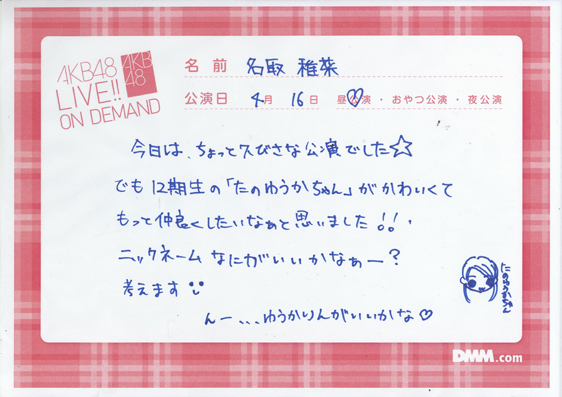 AKB48
LIVE!!
ON DEMAND
AKB
48
名前 名取 稚菜
公演日 4月 16日 昼公演・おやつ公演・夜公演
今日は、ちょっと久びさな公演でした☆
でも12期生の「たのゆうかちゃん」がかわいくて
もっと仲良くしたいなぁと思いました!!
ニックネームなにがいいかなぁー?
考えます
んー、、、ゆうかりんがいいかな♡
たのゆうかちゃん
DMM.com